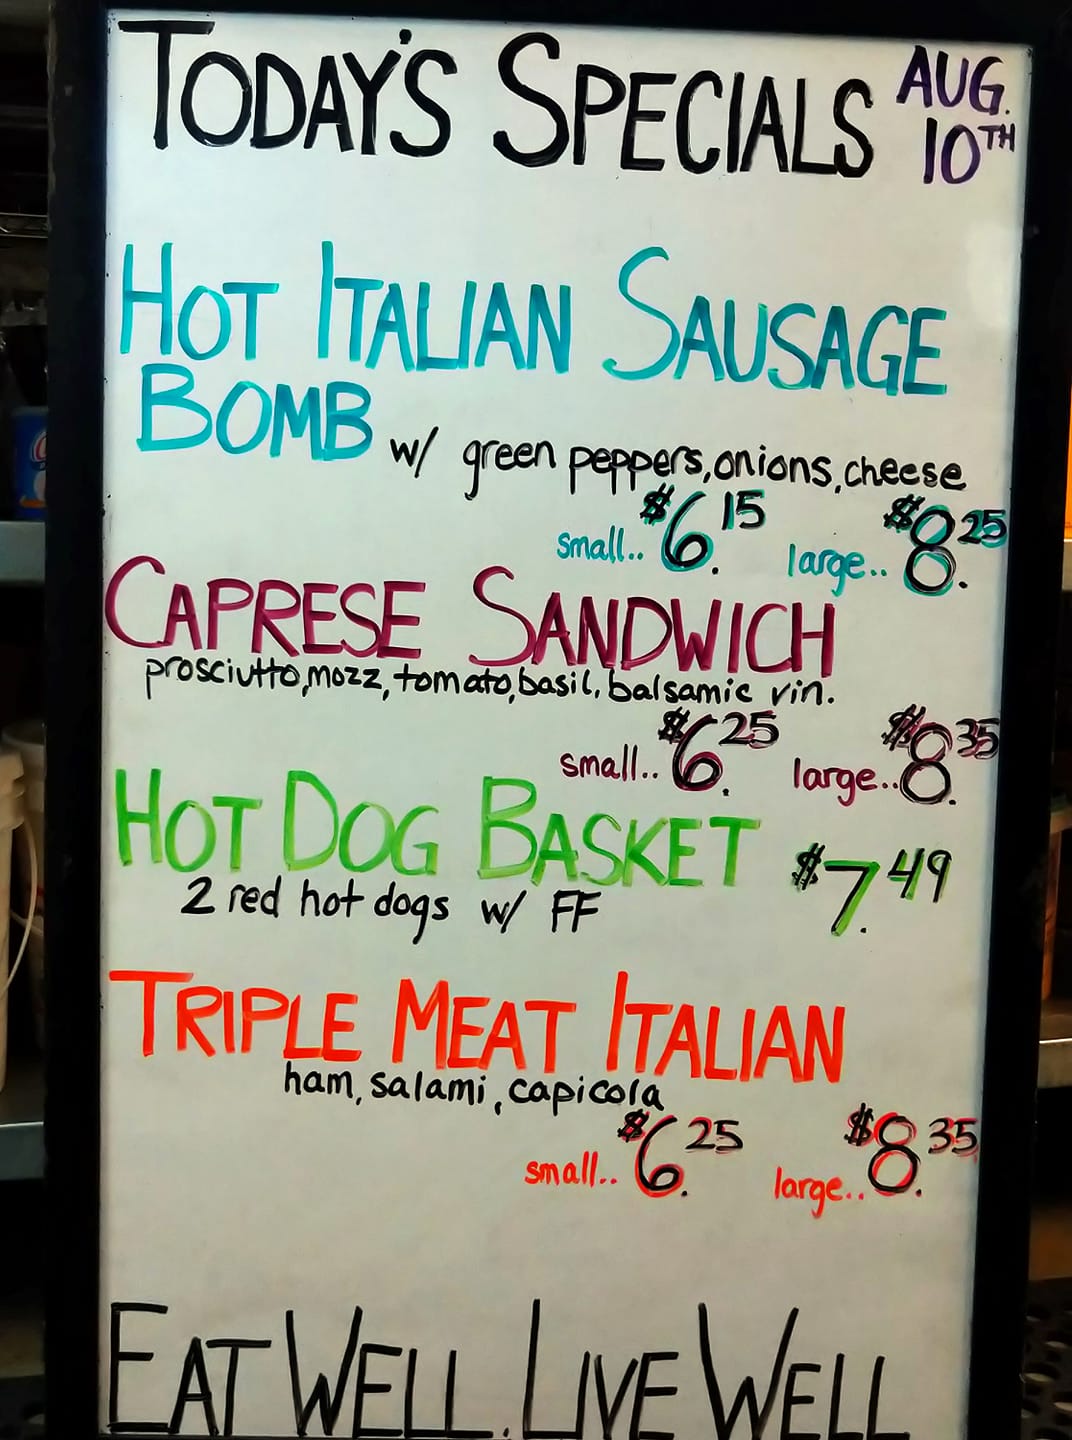 TODAY'S SPECIALS AUG. 10TH
HOT ITALIAN SAUSAGE
BOMB w/ green peppers, onions, cheese
small.. $6.15 large.. $8.25
CAPRESE SANDWICH
prosciutto, mozz, tomato, basil, balsamic vin.
small.. $6.25 large.. $8.35
HOT DOG BASKET $7.49
2 red hot dogs w/ FF
TRIPLE MEAT ITALIAN
ham, salami, capicola
small.. $6.25 large.. $8.35
EAT WELL. LIVE WELL